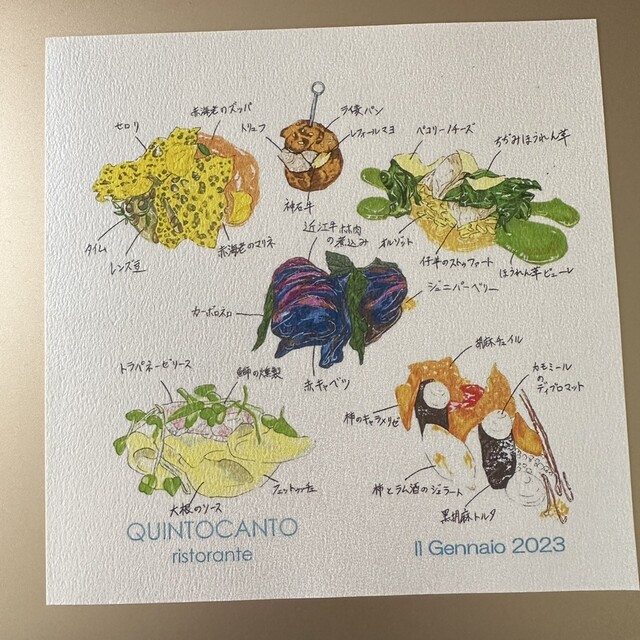 赤海老のズッパ
セロリ
トリュフ
ライ麦パン
レフィールマヨ
ペコリーノチーズ
ちぢみほうれん草
神石牛
タイム
レンズ豆
赤海老のマリネ
近江牛ホホ肉
の煮込み
オルゾット
仔羊のストゥファート
ほうれん草ピューレ
ジュニパーベリー
カーボロネロ
赤キャベツ
胡麻チュイル
トラパネーゼソース
鰤の燻製
カモミール
の
ディプロマット
柿のキャラメリゼ
フェットゥッチェ
大根のソース
柿とラム酒のジェラート
黒胡麻トルタ
QUINTOCANTO
ristorante
Il Gennaio 2023